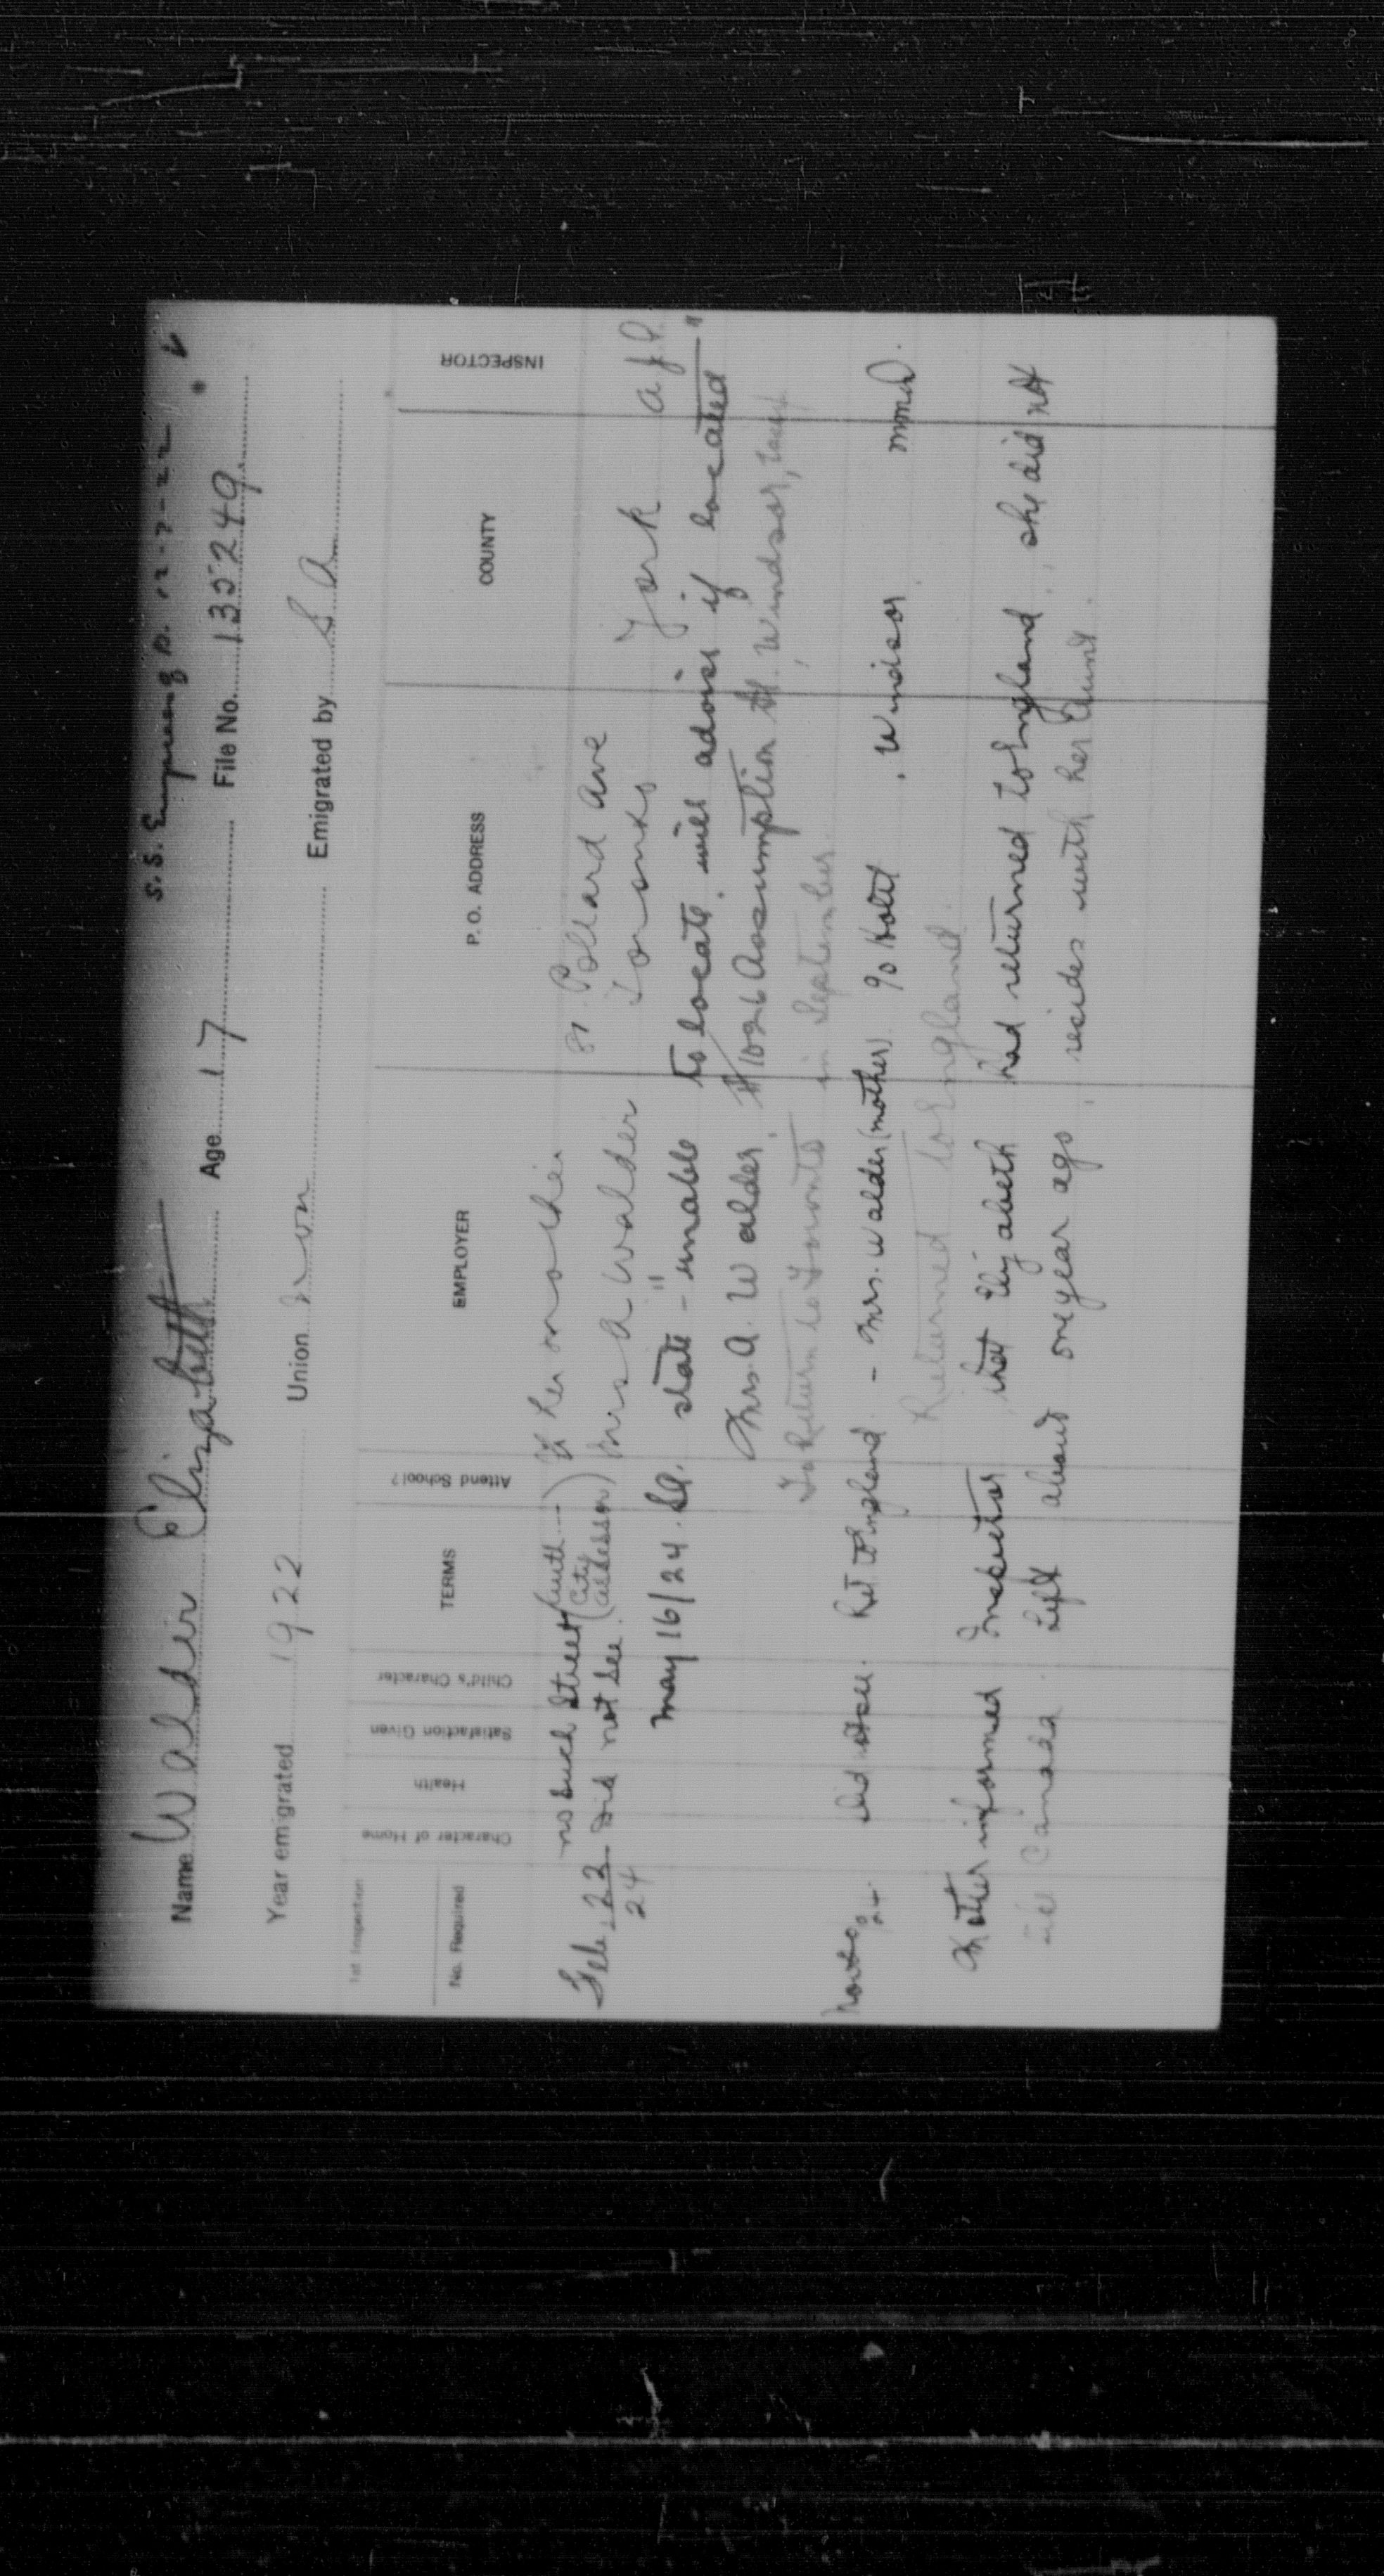 S.S. Empress 12-7-22
Name Walder Elizabeth Age 17 File No. 135249
Year emigrated 1922 Union Emigrated by S A
1st Inspection
No. Required Character of Home Health Satisfaction Given Child's Character TERMS Attend School? EMPLOYER P. O. ADDRESS COUNTY INSPECTOR
no such street (auth - - - ) her mother 81 Pollard Ave
Feb 23 Did not see (City assessor) Mrs A Walder Toronto York
24
May 16/24. S.A. state - "unable to locate, will advise if located"
Mrs. A. Walder, #1026 Assumption St. Windsor,
To Return to Toronto in September.
Nov 20 24. Did not see. Ret to England. - Mrs. Walder (mother) Hotel, Windsor
Returned to England.
Mother informed Inspector that Elizabeth had returned to England, she did not
like Canada. Left about one year ago, resides with her Aunt.